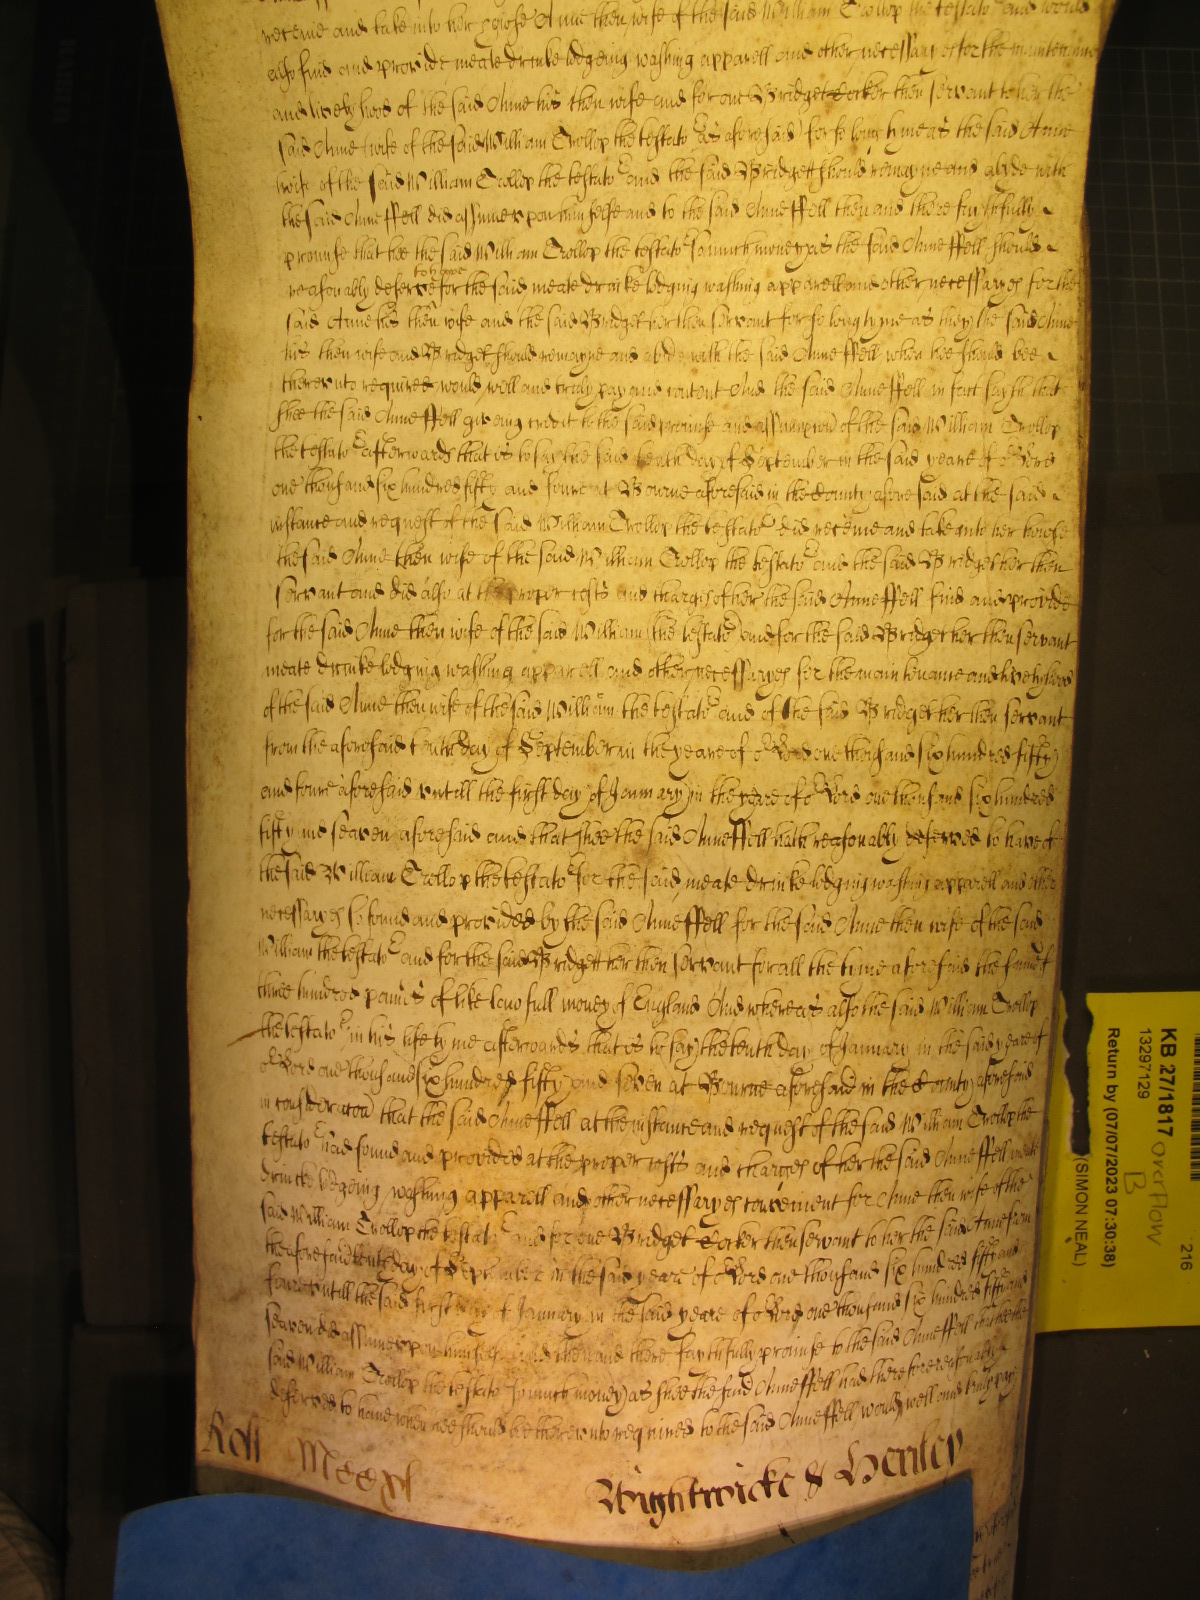 receive and take into her howse Anne then wife of the said William Trollop the testator and would
also find and provide meate drinke lodgeing washing apparell and other necessaries for the maintenance
and livelyhood of the said Anne his then wife and for one Bridget Decker then servant to her the
said Anne (wife of the said William Trollop the testator as aforesaid) for so long tyme as the said Anne
wife of the said William Trollop the testator and the said Bridgett should remayne and abyde with
the said Anne ffell did assume upon himselfe and to the said Anne ffell then and there faithfully
promise that hee the said William Trollop the testator so much money as the said Anne ffell should
reasonably deserve to have for the said meate drinke lodging washing apparell and other necessaryes for the
said Anne his then wife and the said Bridget her then servant for so long tyme as they the said Anne
his then wife and Bridget should remayne and abide with the said Anne ffell when hee should bee
thereunto required would well and truly pay and content And the said Anne ffell in fact sayth that
shee the said Anne ffell giveing credit to the said promise and assumption of the said William Trollop
the testator afterwards that is to say the said tenth day of September in the said yeare of our Lord
one thousand six hundred fifty and foure at Bourne aforesaid in the County aforesaid at the said
instance and request of the said William Trollop the testator did receive and take into her howse
the said Anne then wife of the said William Trollop the testator and the said Bridget her then
servant and did also at the proper costs and charges of her the said Anne ffell find and provide
for the said Anne then wife of the said William (the testator) and for the said Bridget her then servant
meate drinke lodging washing apparell and other necessaryes for the maintenance and livelyhood
of the said Anne then wife of the said William the testator and of the said Bridget her then servant
from the aforesaid tenth day of September in the yeare of our Lord one thousand six hundred fifty
and foure aforesaid untill the first day of January in the yeare of our Lord one thousand six hundred
fifty and seaven aforesaid and that shee the said Anne ffell hath reasonably deserved to have of
the said William Trollop the testator for the said meate drinke lodging washing apparell and other
necessaryes so found and provided by the said Anne ffell for the said Anne then wife of the said
William the testator and for the said Bridgett her then servant for all the tyme aforesaid the summe of
three hundred pounds of like lawfull money of England And whereas also the said William Trollop
the testator in his life tyme afterwards that is to say the tenth day of January in the said yeare of
our Lord one thousand six hundred fifty and seven at Bourne aforesaid in the County aforesaid
in consideration that the said Anne ffell at the instance and request of the said William Trollop the
testator had found and provided at the proper costs and charges of her the said Anne ffell meate
drinke lodgeing washing apparell and other necessaryes convenient for Anne then wife of the
said William Trollop the testator and for one Bridget Decker then servant to her the said Anne from
the aforesaid tenth day of September in the said yeare of our Lord one thousand six hundred fifty and
foure untill the said first day of January in the said yeare of our Lord one thousand six hundred fifty and
seaven did assume upon himselfe and then and there faythfully promise to the said Anne ffell that hee the
said William Trollop the testator so much money as shee the said Anne ffell had therefore reasonably
deserved to have when hee should be thereunto required to the said Anne ffell would well and truly pay
Roll Mccxl
Wightwicke & Henley
KB 27/1817 overflow
13297129 B
Return by (07/07/2023 07:30:38)
(SIMON NEAL)
216